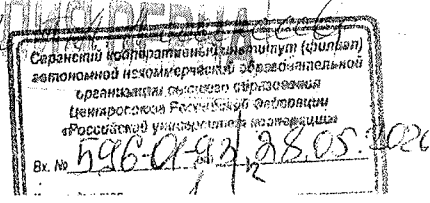 КОПИЯ ВЕРНА
Саранский кооперативный институт (филиал)
автономной некоммерческой образовательной
организации высшего образования
Центросоюза Российской Федерации
«Российский университет кооперации»
Вх. № 596-01-92 28.05.2020